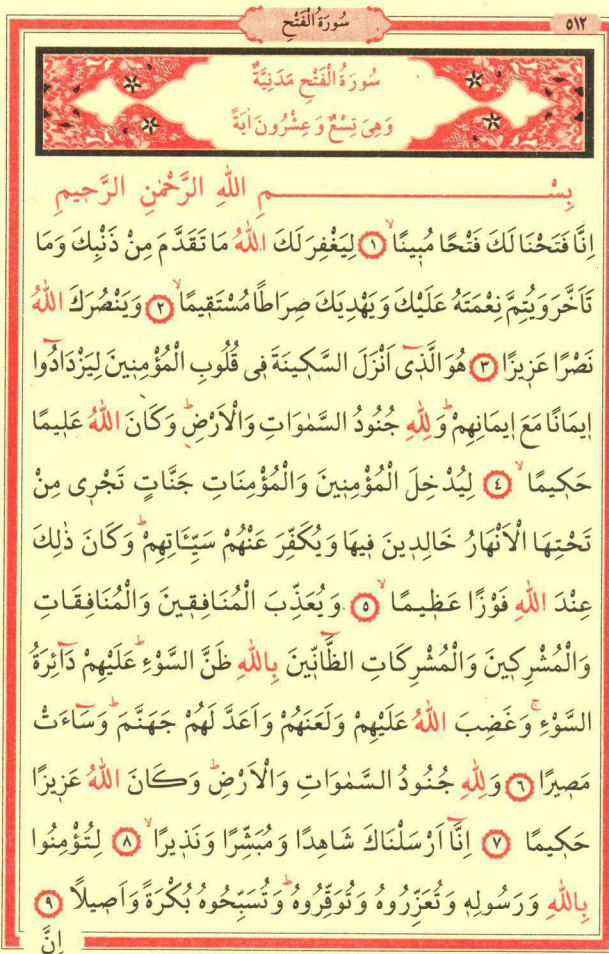 سُورَةُ الْفَتْحِ ٥١٢
سُورَةُ الْفَتْحِ مَدَنِيَّةٌ
وَهِىَ تِسْعٌ وَعِشْرُونَ اٰيَةً
بِسْمِ اللهِ الرَّحْمٰنِ الرَّحٖيمِ
اِنَّا فَتَحْنَا لَكَ فَتْحًا مُبٖينًاۙ ﴿١﴾ لِيَغْفِرَ لَكَ اللهُ مَا تَقَدَّمَ مِنْ ذَنْبِكَ وَمَا
تَاَخَّرَ وَيُتِمَّ نِعْمَتَهُ عَلَيْكَ وَيَهْدِيَكَ صِرَاطًا مُسْتَقٖيمًاۙ ﴿٢﴾ وَيَنْصُرَكَ اللهُ
نَصْرًا عَزٖيزًا ﴿٣﴾ هُوَ الَّذٖٓى اَنْزَلَ السَّكٖينَةَ فٖى قُلُوبِ الْمُؤْمِنٖينَ لِيَزْدَادُٓوا
اٖيمَانًا مَعَ اٖيمَانِهِمْؕ وَلِلّٰهِ جُنُودُ السَّمٰوَاتِ وَالْاَرْضِؕ وَكَانَ اللهُ عَلٖيمًا
حَكٖيمًاۙ ﴿٤﴾ لِيُدْخِلَ الْمُؤْمِنٖينَ وَالْمُؤْمِنَاتِ جَنَّاتٍ تَجْرٖى مِنْ
تَحْتِهَا الْاَنْهَارُ خَالِدٖينَ فٖيهَا وَيُكَفِّرَ عَنْهُمْ سَيِّـَٔاتِهِمْؕ وَكَانَ ذٰلِكَ
عِنْدَ اللهِ فَوْزًا عَظٖيمًاۙ ﴿٥﴾ وَيُعَذِّبَ الْمُنَافِقٖينَ وَالْمُنَافِقَاتِ
وَالْمُشْرِكٖينَ وَالْمُشْرِكَاتِ الظَّٓانّٖينَ بِاللهِ ظَنَّ السَّوْءِؕ عَلَيْهِمْ دَٓائِرَةُ
السَّوْءِۚ وَغَضِبَ اللهُ عَلَيْهِمْ وَلَعَنَهُمْ وَاَعَدَّ لَهُمْ جَهَنَّمَؕ وَسَٓاءَتْ
مَصٖيرًا ﴿٦﴾ وَلِلّٰهِ جُنُودُ السَّمٰوَاتِ وَالْاَرْضِؕ وَكَانَ اللهُ عَزٖيزًا
حَكٖيمًا ﴿٧﴾ اِنَّٓا اَرْسَلْنَاكَ شَاهِدًا وَمُبَشِّرًا وَنَذٖيرًاۙ ﴿٨﴾ لِتُؤْمِنُوا
بِاللهِ وَرَسُولِهٖ وَتُعَزِّرُوهُ وَتُوَقِّرُوهُؕ وَتُسَبِّحُوهُ بُكْرَةً وَاَصٖيلًا ﴿٩﴾
اِنَّ